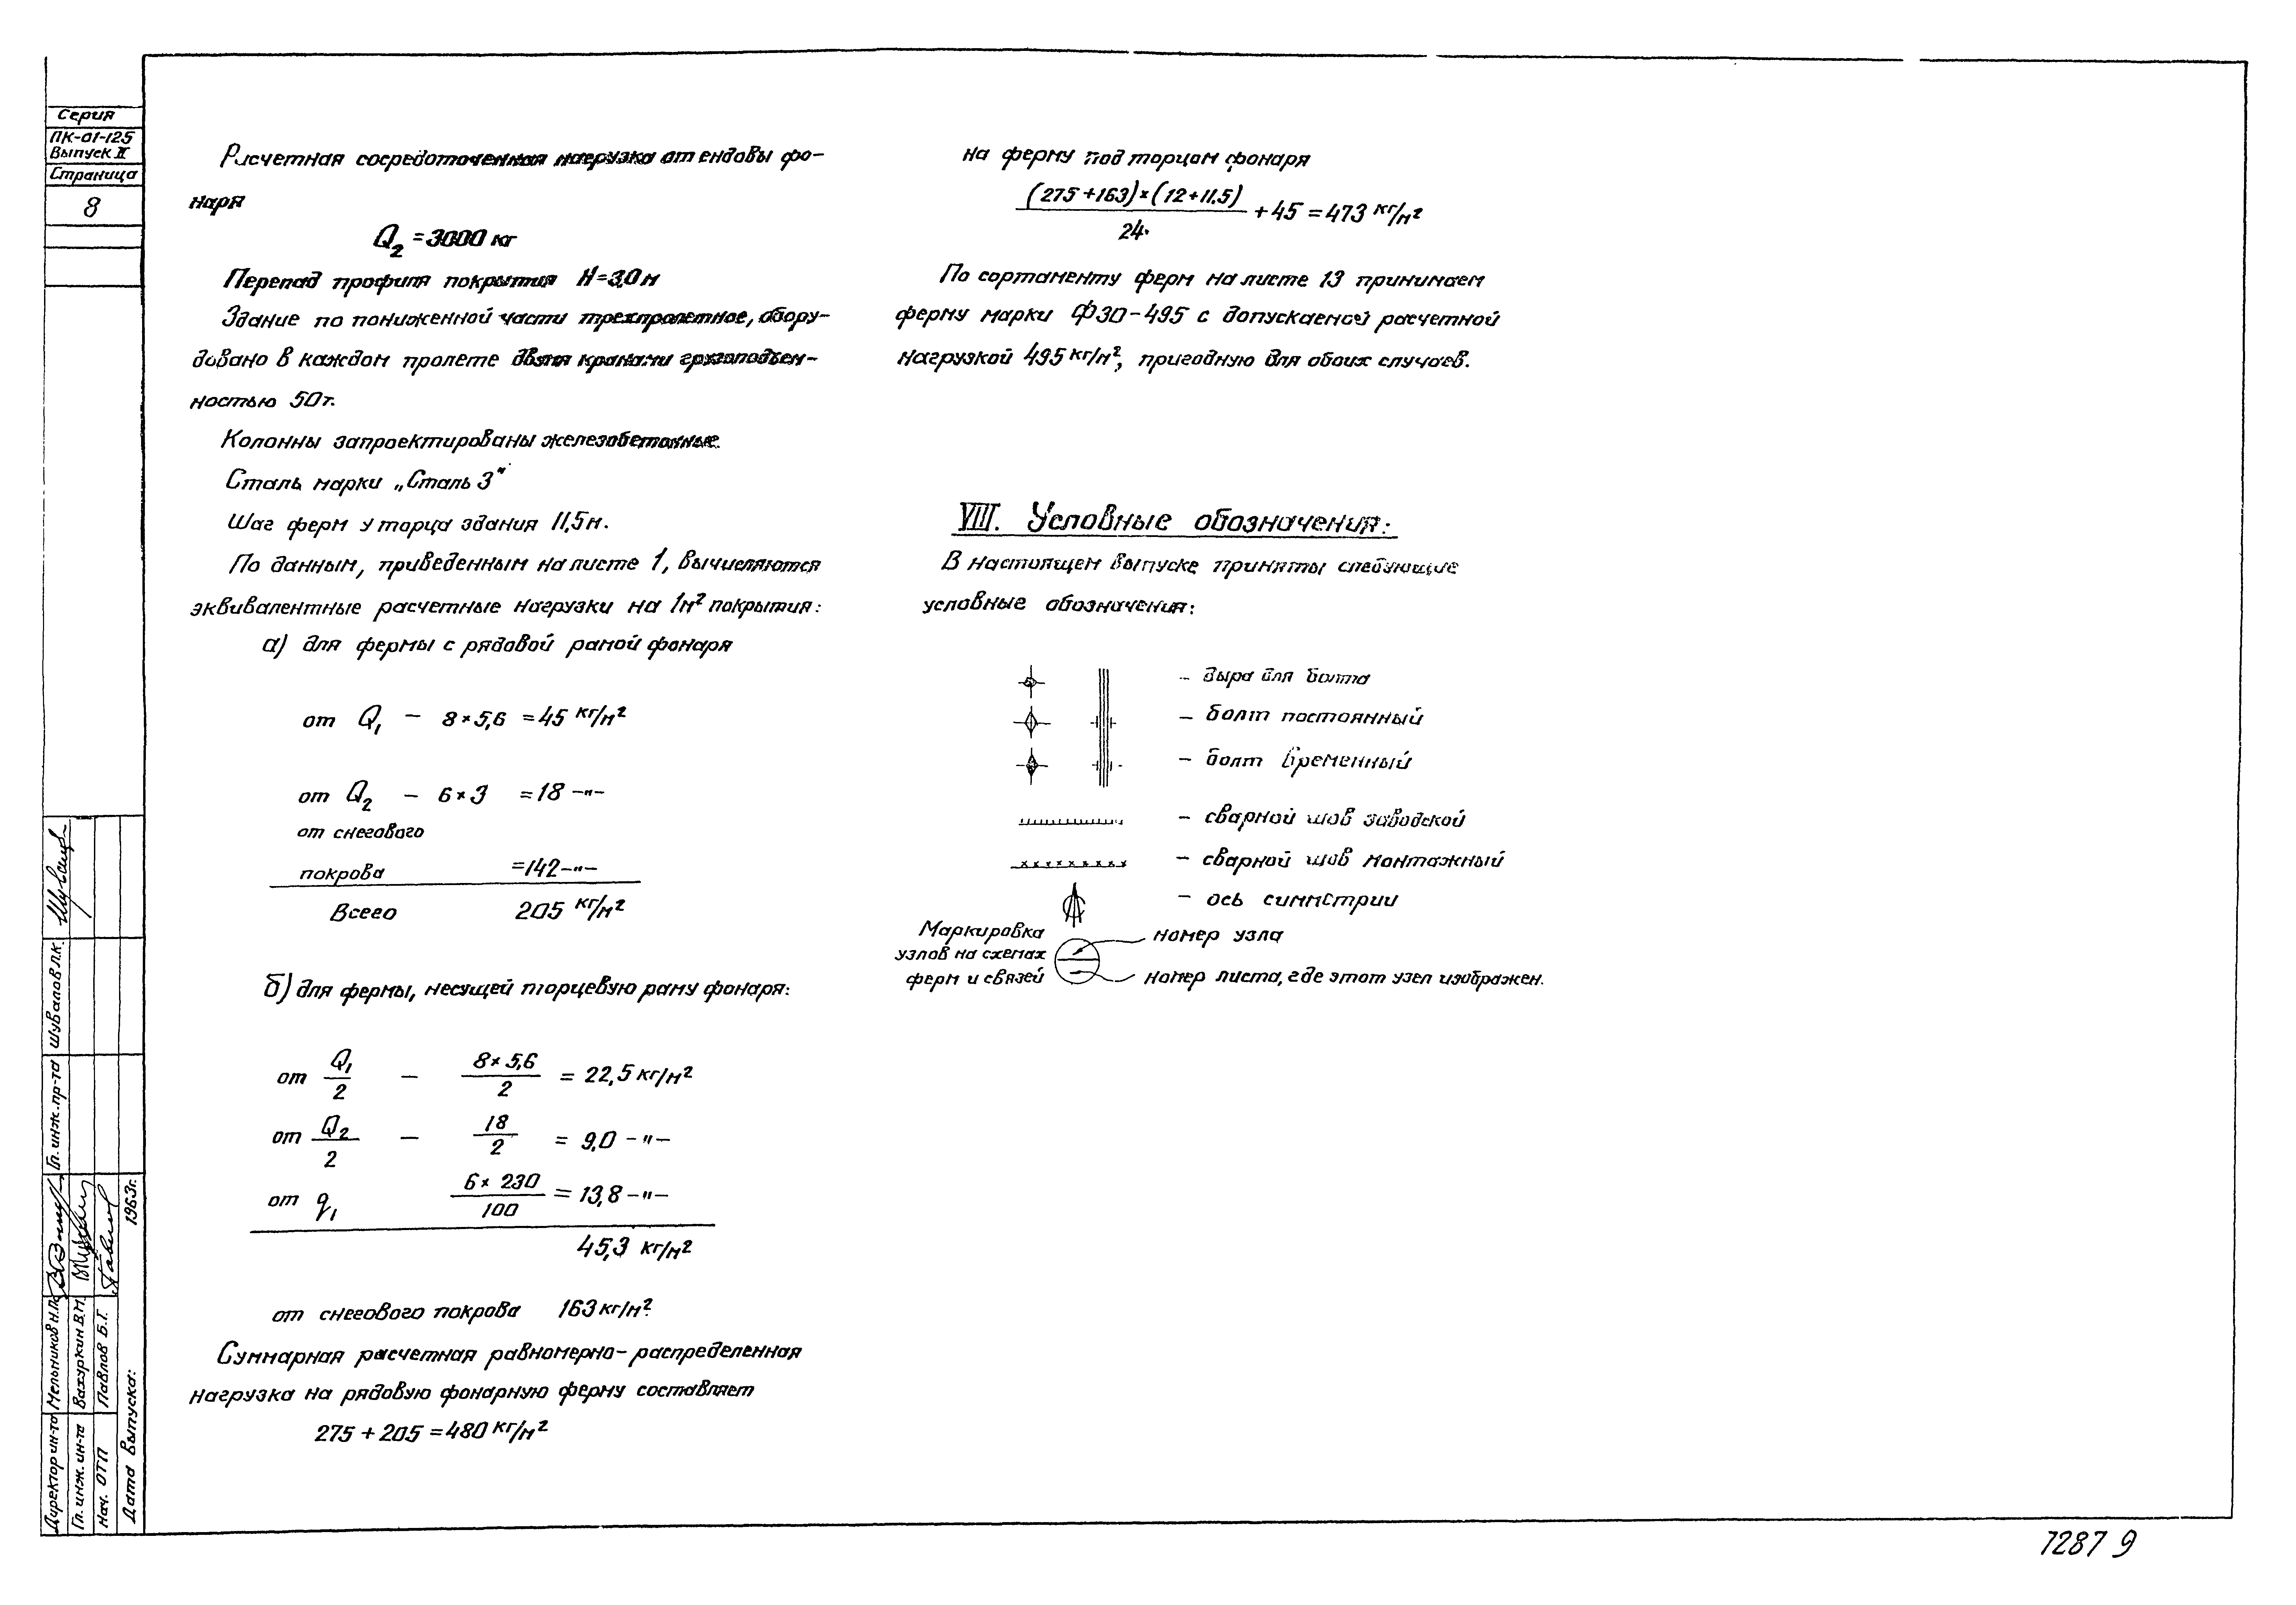 Серия
ПК-01-125
Выпуск II
Страница
8
Расчетная сосредоточенная нагрузка от ендовы фо-
наря
Q₂ = 3000 кг
Перепад профиля покрытия H=3,0 м
Здание по пониженной части трехпролетное, обору-
довано в каждом пролете двумя кранами грузоподъем-
ностью 50т.
Колонны запроектированы железобетонные.
Сталь марки „Сталь 3"
Шаг ферм у торца здания 11,5м.
По данным, приведенным на листе 1, вычисляются
эквивалентные расчетные нагрузки на 1м² покрытия:
а) для фермы с рядовой рамой фонаря
от Q₁ – 8×5,6 = 45 кг/м²
от Q₂ – 6×3 = 18 –"–
от снегового
покрова = 142 –"–
Всего 205 кг/м²
б) для фермы, несущей торцевую раму фонаря:
от Q₁/2 – 8×5,6/2 = 22,5 кг/м²
от Q₂/2 – 18/2 = 9,0 –"–
от q₁ 6×230/100 = 13,8 –"–
45,3 кг/м²
от снегового покрова 163 кг/м².
Суммарная расчетная равномерно-распределенная
нагрузка на рядовую фонарную ферму составляет
275 + 205 = 480 кг/м²
на ферму под торцом фонаря
(275+163)×(12+11.5)/24 + 45 = 473 кг/м²
По сортаменту ферм на листе 13 принимаем
ферму марки Ф30-495 с допускаемой расчетной
нагрузкой 495 кг/м², пригодную для обоих случаев.
VIII. Условные обозначения:
В настоящем выпуске приняты следующие
условные обозначения:
– дыра для болта
– болт постоянный
– болт временный
– сварной шов заводской
– сварной шов монтажный
– ось симметрии
Маркировка
узлов на схемах
ферм и связей
номер узла
номер листа, где этот узел изображен.
Директор ин-та Мельников Н.П.
Гл. инж. ин-та Вахуркин В.М.
Нач. ОТП Павлов Б.Г.
Гл. инж. пр-та Шувалов Л.К.
Дата выпуска: 1963г.
7287 9